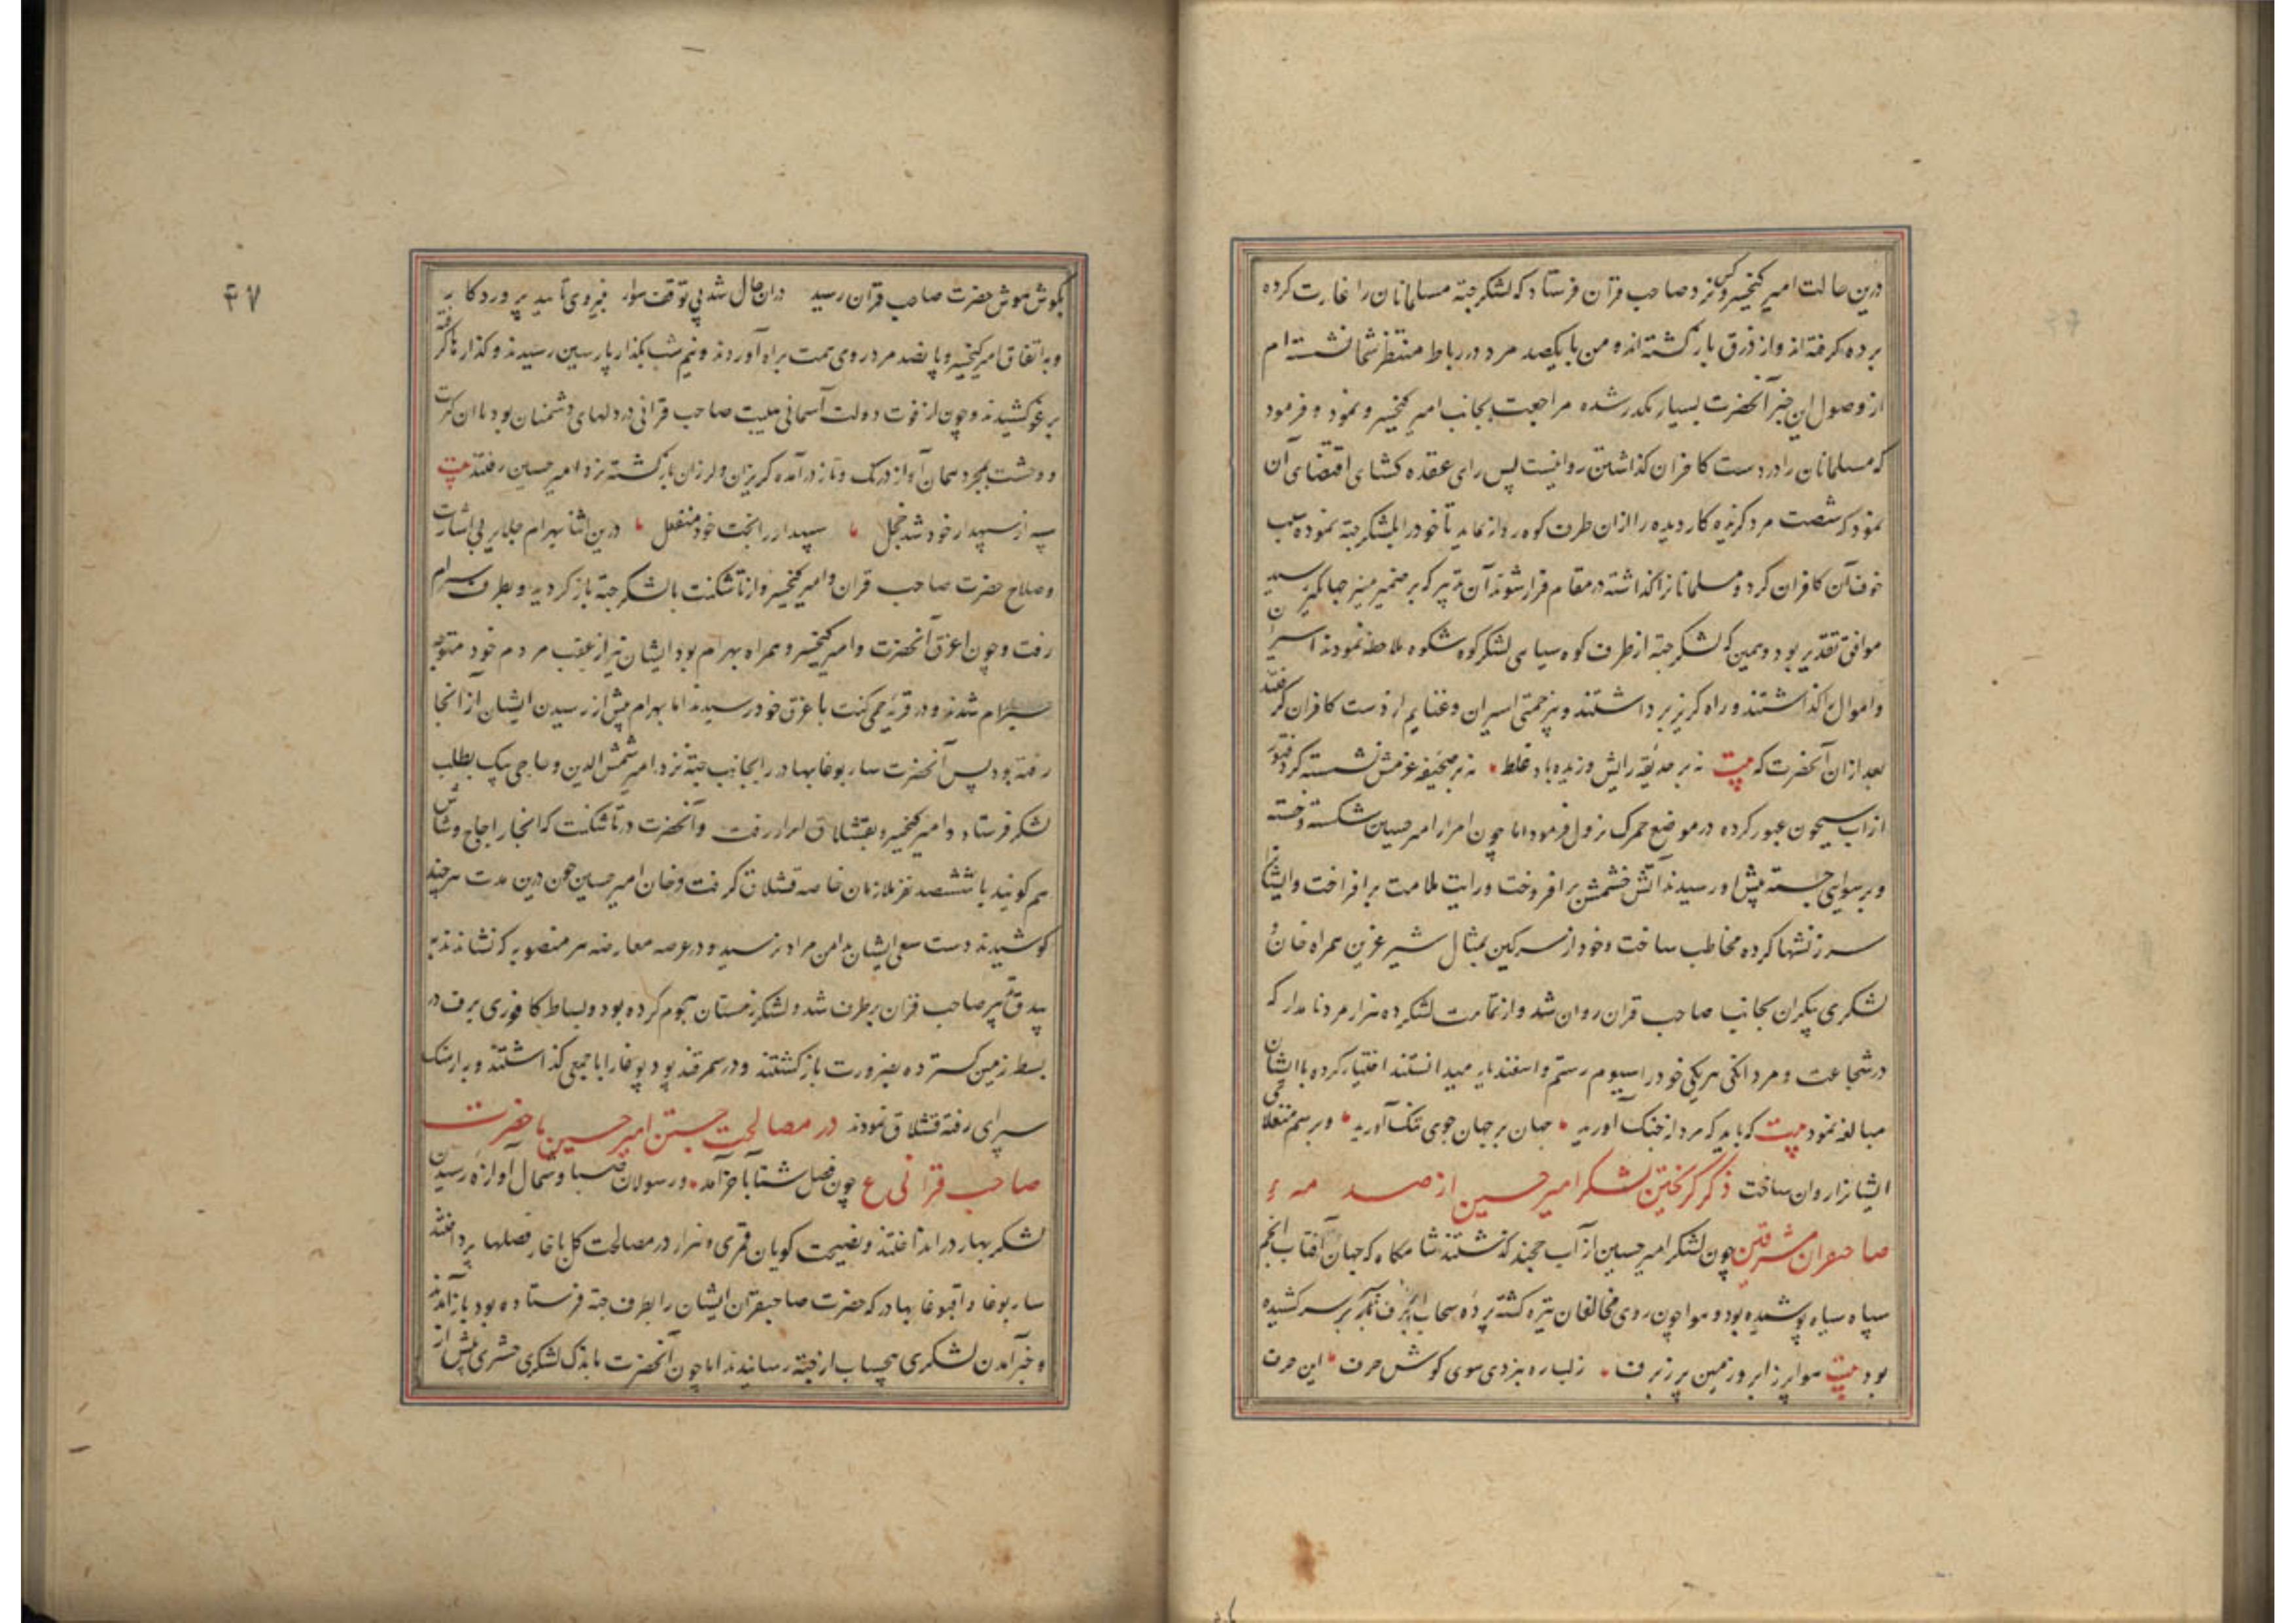 درین حالت امیر کیخسرو کس نزد صاحب قران فرستاد که لشکر جته مسلمانان را غارت کرده
برده گرفته اند و از ذرق بازگشته اند و من با یکصد مرد در رباط منتظر شما نشسته ام
از وصول این خبر آنحضرت بسیار مکدر شده مراجعت بجانب امیر کیخسرو نمود و فرمود
که مسلمانان را در دست کافران گذاشتن روا نیست پس رای عقده کشای اقتضای آن
نمود که شصت مرد گزیده کار دیده را از ان طرف کوه روانه نماید تا خود را بلشکر جته نموده سبب
خوف آن کافران گردد و مسلمانانرا گذاشته در مقام فرار شوند آن تدبیر که بر ضمیر منیر جهانگیر رسید
موافق تقدیر بود و همین که لشکر جته از طرف کوه سیاهی لشکر کوه شکوه ملاحظه نمودند اسیران
و اموال گذاشتند و راه گریز برداشتند و بیزحمتی اسیران و غنایم از دست کافران گرفتند
بعد از ان آنحضرت که بیت نه بر حدیقه رایش وزیده باد غلط نه بر صحیفه عزمش نشسته گرد فتور
از آب سیحون عبور کرده در موضع نزول فرمود اما چون امرا امیر حسین شکسته و خسته
و برسوایی جسته پیش او رسیدند آتش خشمش برافروخت و رایت ملامت برافراخت و ایشانرا
سرزنشها کرده مخاطب ساخت و خود از سر کین بمثال شیر عرین همراه خان و
لشکری بیکران بجانب صاحب قران روان شد و از تمامت لشکر ده هزار مرد نامدار که
در شجاعت و مردانگی هر یکی خود را سیوم رستم و اسفندیار میدانستند اختیار کرده با ایشان
مبالغه نمود بیت که باید که مردانه جنگ آورید جهان بر جهان جوی تنگ آورید و برسم منقلای
ایشانرا روان ساخت ذکر گریختن لشکر امیر حسین از صدمهٔ
صاحبقران مشرقین چون لشکر امیر حسین از آب خجند گذشتند شامگاه که جهان آفتاب انجم
سپاه سیاه پوشیده بود و هوا چون روی مخالفان تیره گشته پرده سحاب برف بر سر کشیده
بود بیت هوا پر ز ابر و زمین پر ز برف ز لب ره نبردی سوی گوش حرف این حرف
۴۷
بگوش هوش حضرت صاحب قران رسید در ان حال شد بی توقف سوار بنیروی تایید پروردگار
و باتفاق امیر کیخسرو با پانصد مرد روی همت براه آوردند و نیم شب بگذار پارسین رسیدند و گذار ناگرفته
برغو کشیدند و چون از قوت دولت آسمانی هیبت صاحب قرانی در دلهای دشمنان بود با ان کثرت
و وحشت بمجرد همان آواز در تک و تاز در آمده گریزان و لرزان بازگشته نزد امیر حسین رفتند بیت
سپه از سپهدار خود شد خجل سپهدار را بخت خود منفعل درین اثنا بهرام جلایر بی اشارت
و صلاح حضرت صاحب قران و امیر کیخسرو از تاشکنت با لشکر جته باز گردید و بطرف سیرام
رفت و چون اغرق آنحضرت و امیر کیخسرو همراه بهرام بود ایشان نیز از عقب مردم خود متوجه
سیرام شدند و در قریه کنت باغرق خود رسیدند اما بهرام پیش از رسیدن ایشان از انجا
رفته بود پس آنحضرت ساربوغا بهادر را بجانب جته نزد امیر شمس الدین و حاجی بیک بطلب
لشکر فرستاد و امیر کیخسرو بقشلاق رفت و آنحضرت در تاشکنت که انجا را چاچ و شاش
هم گویند با ششصد نفر ملازمان خاصه قشلاق گرفت و خان امیر حسین چون درین مدت هر چند
کوشیدند دست سعی ایشان بدامن مراد نرسید و در عرصه معارضه هر منصوبه که نشاندند به
بیدق تدبیر صاحب قران برطرف شد و لشکر زمستان هجوم کرده بود و بساط کافوری برف در
بسط زمین گسترده بضرورت بازگشتند و در سمرقند بود بوغا را با جمعی گذاشتند و بارسنک
سرای رفته قشلاق نمودند در مصالحت جستن امیر حسین با حضرت
صاحب قرانی ع چون فصل شتا باخر آمد و رسولان صبا و شمال آوازه رسیدن
لشکر بهار در انداختند و نصیحت گویان قمری و هزار در مصالحت گل با خار فصلها پرداختند
ساربوغا و اقبوغا بهادر که حضرت صاحبقران ایشان را بطرف جته فرستاده بود باز آمدند
و خبر آمدن لشکری بیحساب از جته رسانیدند اما چون آنحضرت باندک لشکری حشری پیش از